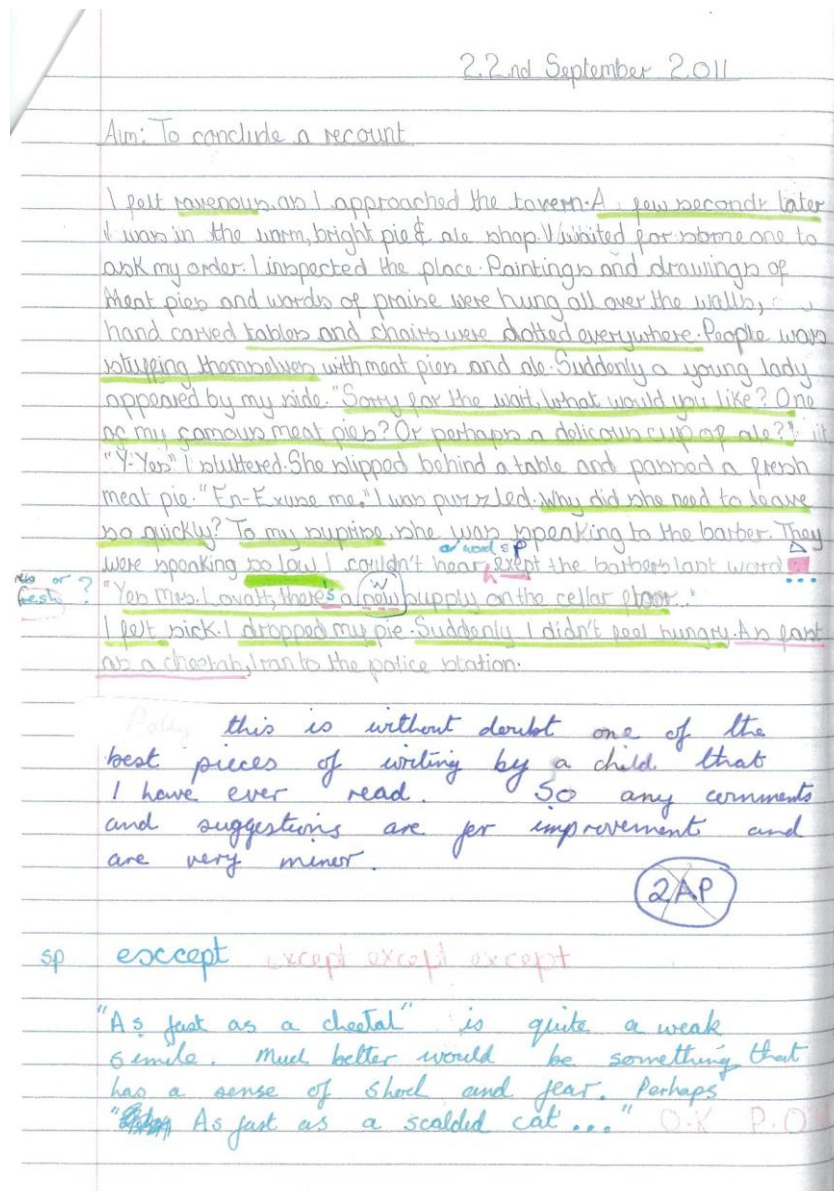 22nd September 2011
Aim: To conclude a recount
I felt ravenous as I approached the tavern. A few seconds later
I was in the warm, bright pie & ale shop. I waited for some one to
ask my order. I inspected the place. Paintings and drawings of
Meat pies and words of praise were hung all over the walls,
hand carved tables and chairs were dotted everywhere. People was
stuffing themselves with meat pies and ale. Suddenly a young lady
appeared by my side. "Sorry for the wait, what would you like? One
of my famous meat pies? Or perhaps a delicous cup of ale?"
"Y-Yes" I stuttered. She slipped behind a table and passed a fresh
meat pie. "En-Exuse me." I was puzzled. Why did she need to leave
so quickly? To my suprise, she was speaking to the barber. They
word sp
were speaking so low I couldn't hear exept the barbers last word
or ?
fresh
w
"Yes Mrs. Lovatt, there's a new supply on the cellar floor..."
I felt sick. I dropped my pie. Suddenly I didn't feel hungry. As fast
as a cheetah, I ran to the police station.
Polly this is without doubt one of the
best pieces of writing by a child that
I have ever read. So any comments
and suggestions are for improvement and
are very minor.
2AP
sp except except except except
"As fast as a cheetah" is quite a weak
simile. Much better would be something that
has a sense of shock and fear. Perhaps
"As fast as a scalded cat..." O.K P.O